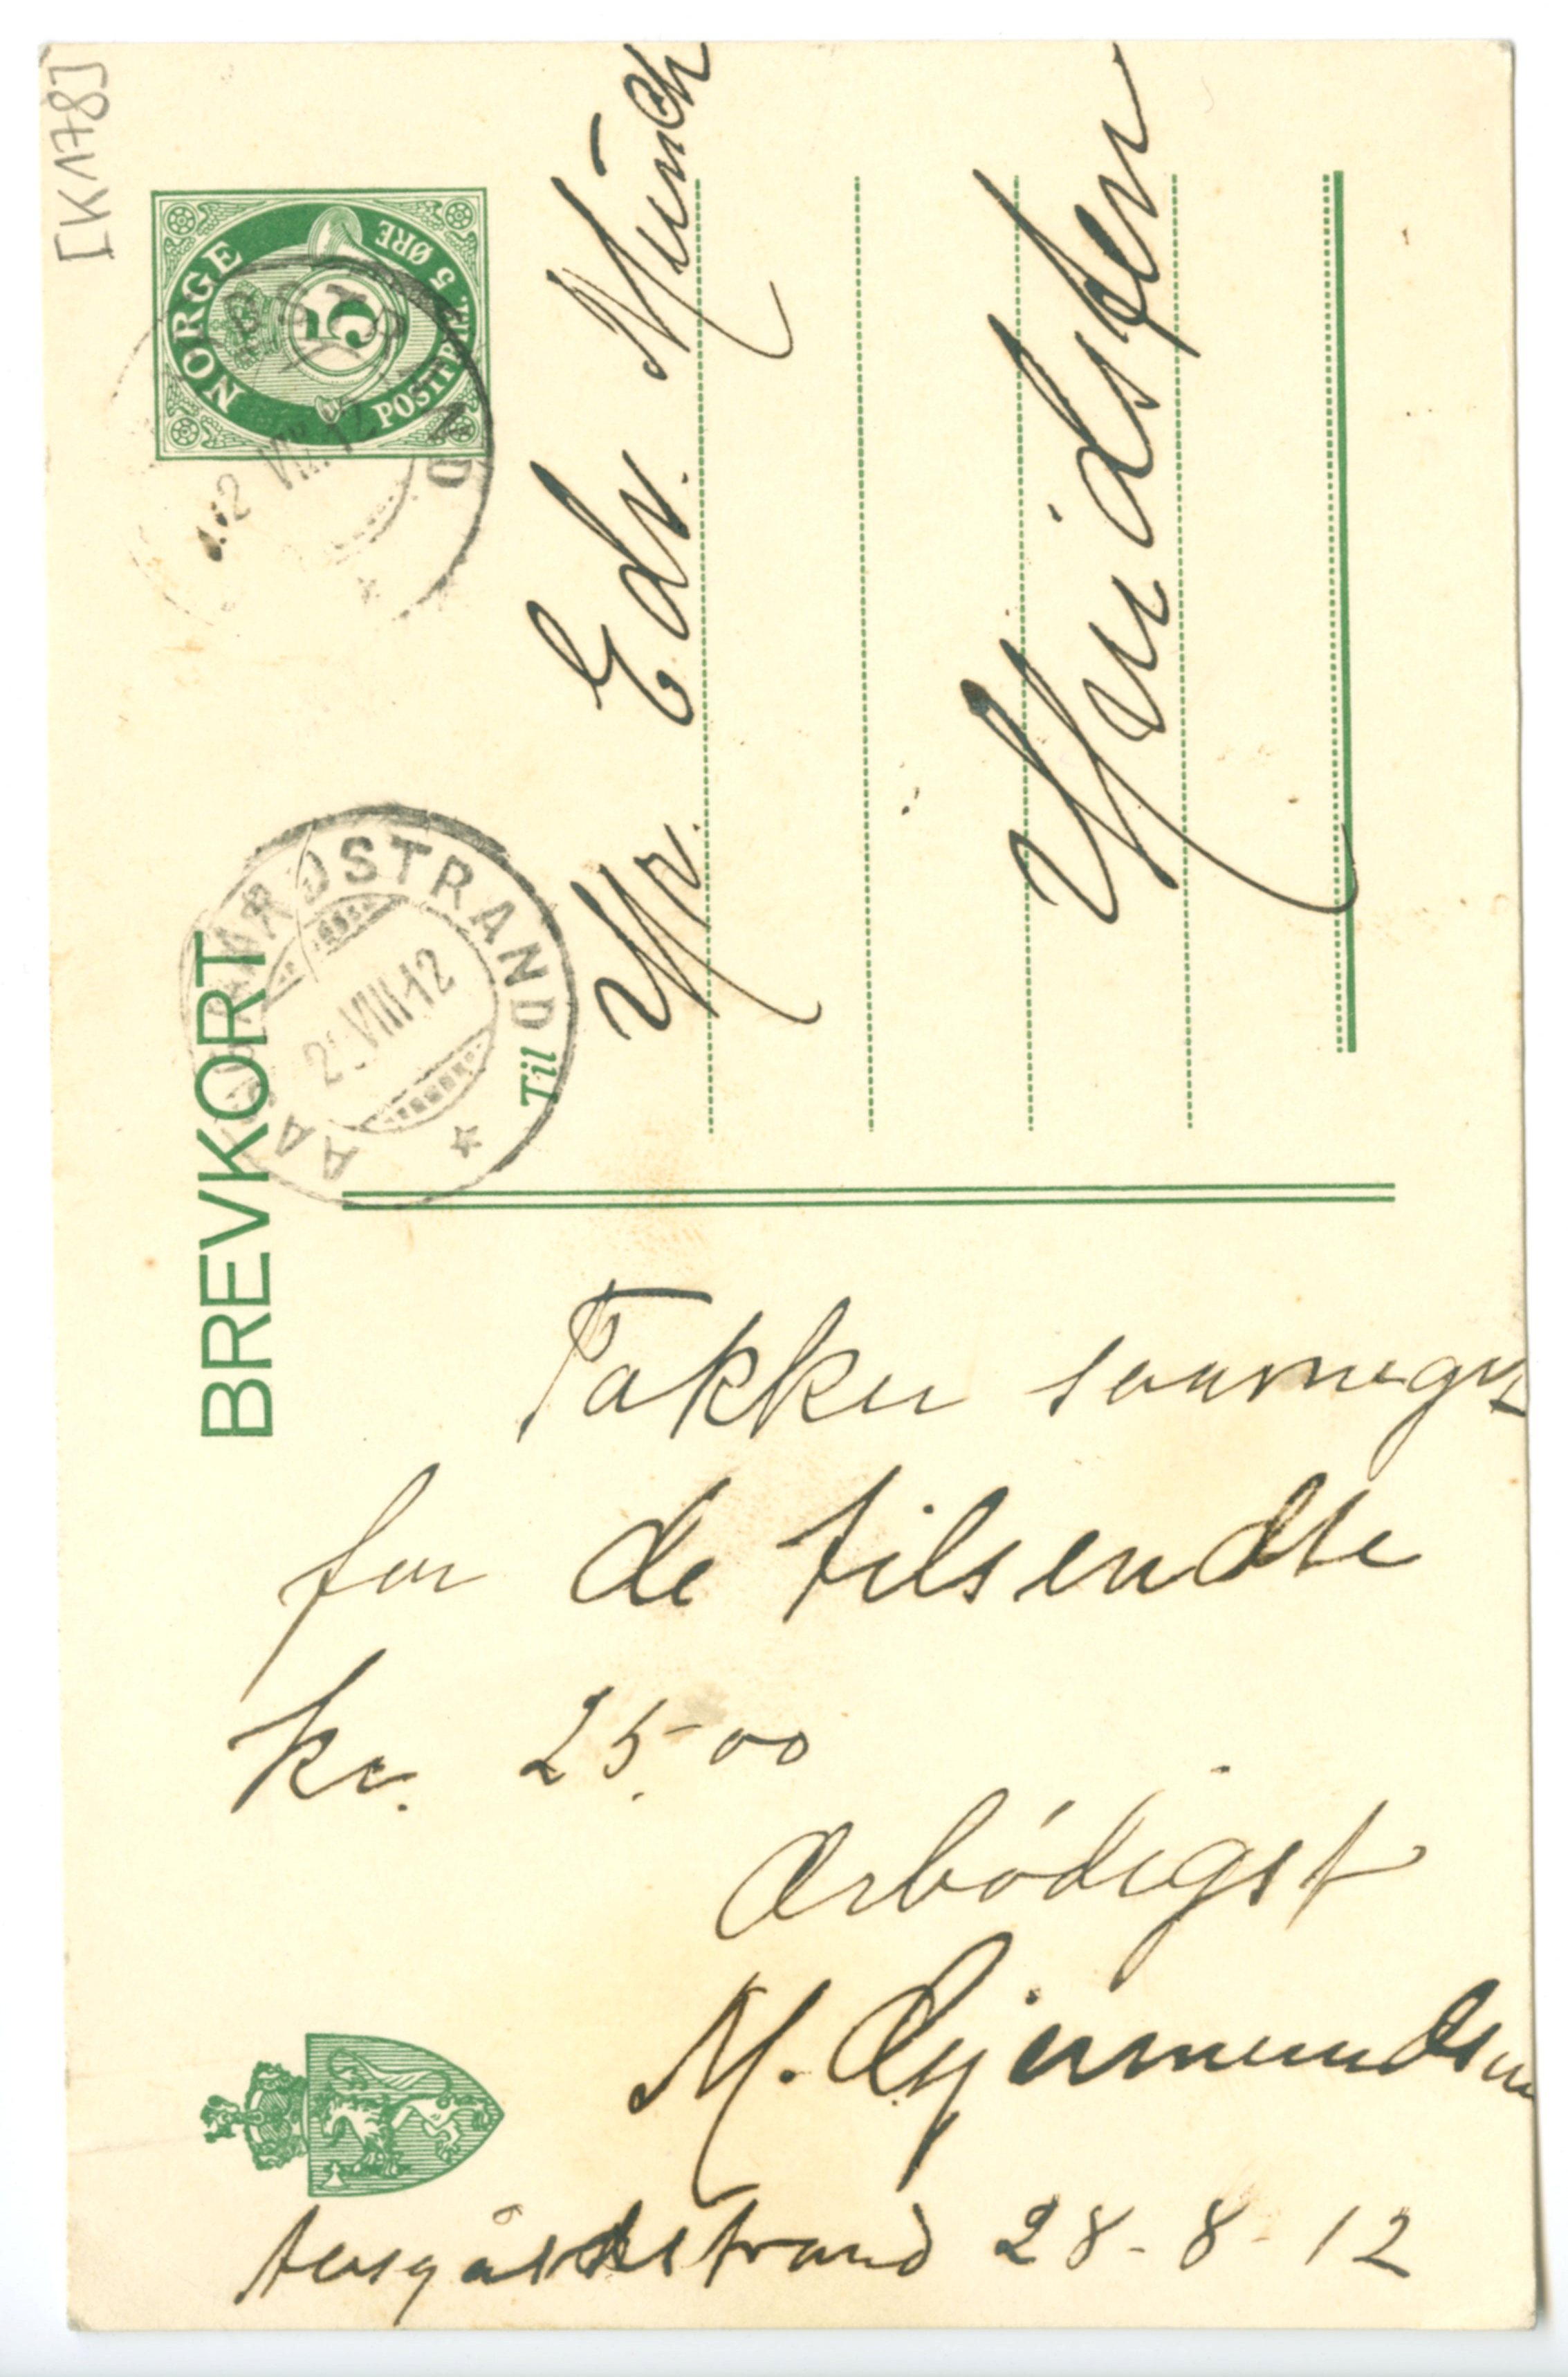 [K178]
NORGE
POSTFRIM. 5 ØRE
5
BREVKORT
AASGAARDSTRAND
VIII 12
Til
Hr. Edv. Munch
Hvidsten
Takker saameget
for de tilsendte
kr. 25.00
Ærbødigst
M. Gjermundsen
Aasgårdstrand 28-8-12